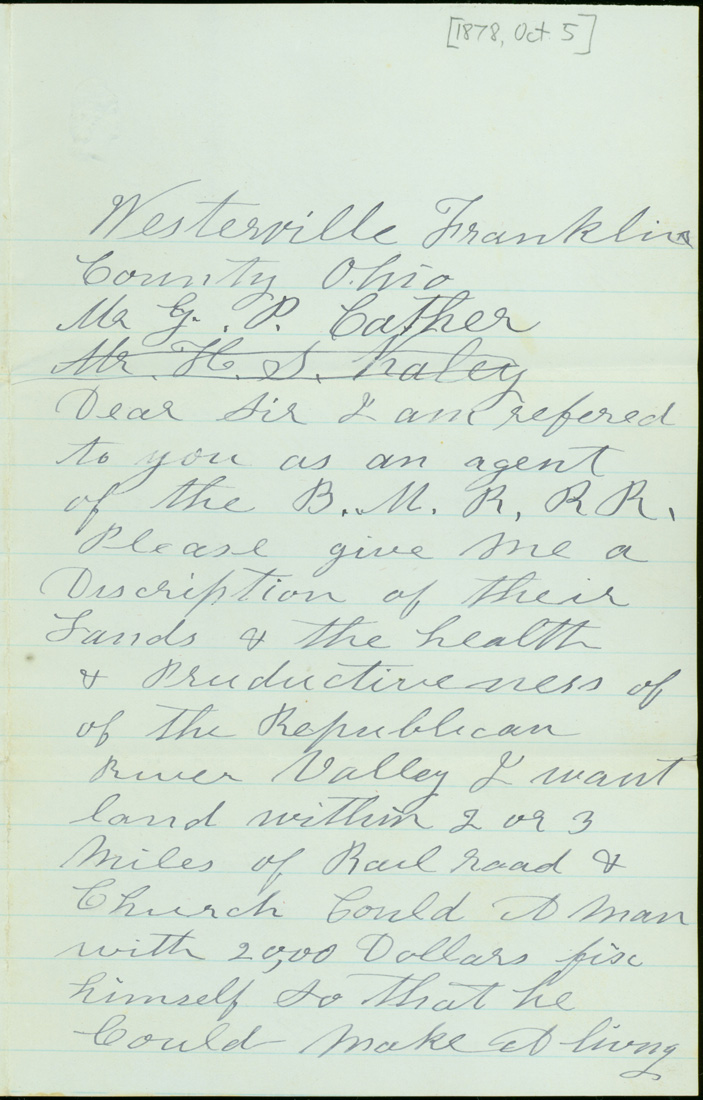 [1878, Oct 5]
Westerville Franklin
County Ohio
Mr G. P. Cather
Mr. H. S. Kaley
Dear Sir I am refered
to you as an agent
of the B. M. R, R R.
Please give me a
Discription of their
Lands & the health
& Pruductiveness of
of the Republican
River Valley I want
land within 2 or 3
Miles of Rail raad &
Church Could A man
with 20,00 Dollars fix
himself so that he
Could make A living